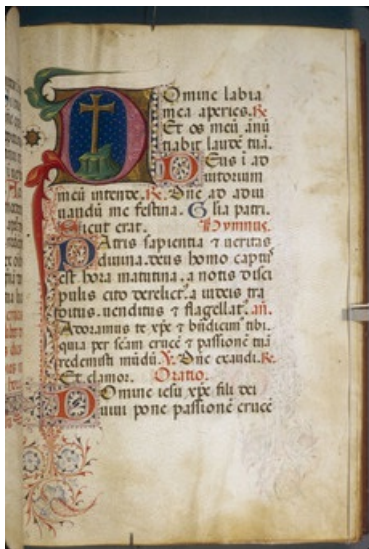 Domine labia
mea aperies. Re
Et os meū ānū
tiabit laudē tuā.
Deus ī ad
iutorium
meū intende. Re. Dn̄e ad adiu
uandū me festina. Glia patri.
Sicut erat. Hymnus.
Patris sapientia ⁊ ueritas
diuina. deus homo captus
est hora matutina. a notis disci
pulis cito derelict. a iudeis tra
ditus. uenditus ⁊ flagellat. añ.
Adoramus te xp̄e ⁊ bn̄dicim tibi.
quia per sc̄am crucē ⁊ passionē tuā
redemisti mūdū. V. Dn̄e exaudi. Re.
Et clamor. Oratio.
Domine iesu xp̄e fili dei
uiui pone passionē crucē